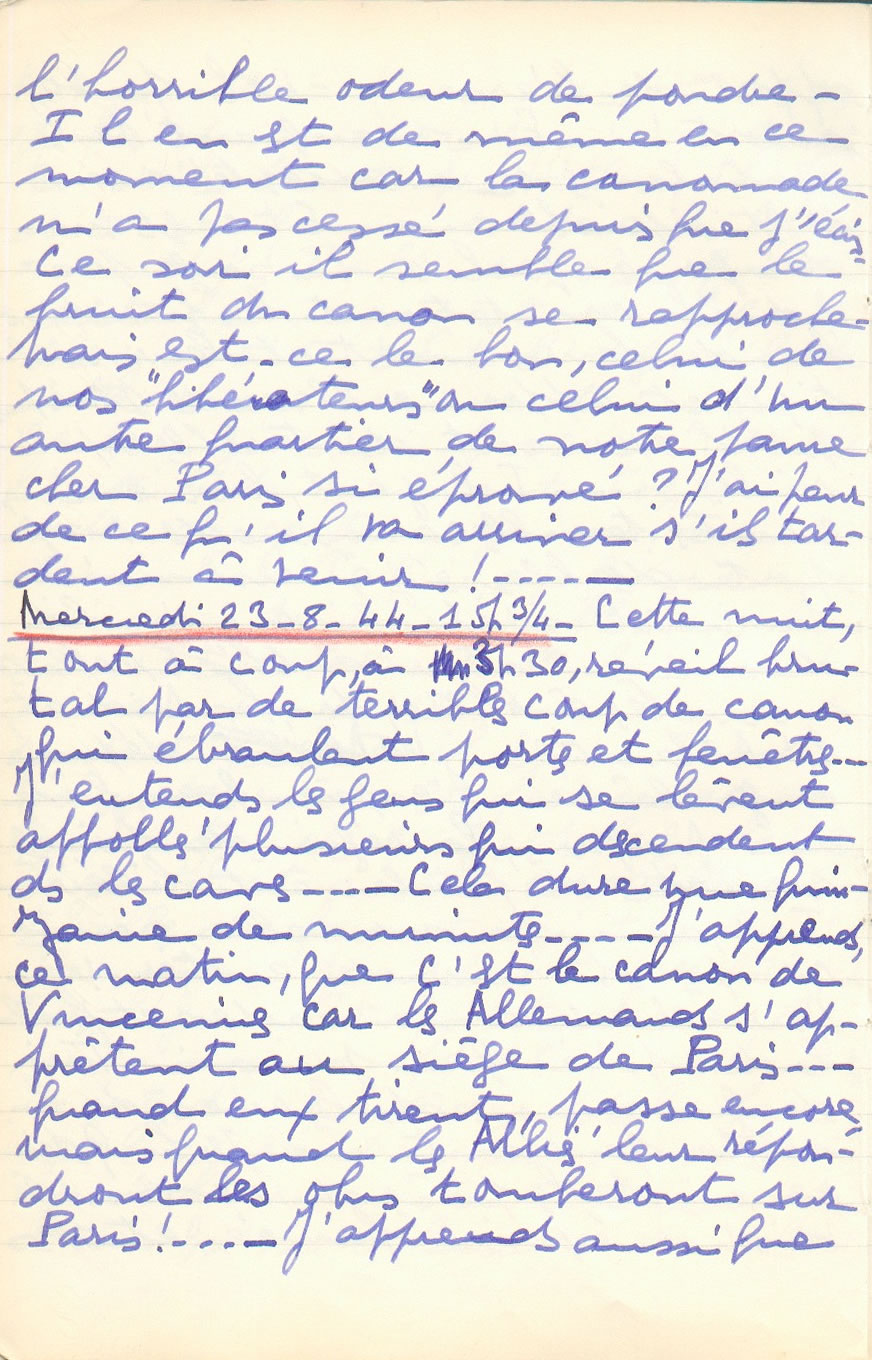 l'horrible odeur de poudre -
Il en est de même en ce
moment car la canonnade
n'a pas cessé depuis que j'écris-
Ce soir il semble que le
bruit du canon se rapproche-
Mais est-ce le bon, celui de
nos "libérateurs" ou celui d'un
autre quartier de notre pauvre
cher Paris si éprouvé ? J'ai peur
de ce qu'il va arriver s'ils tar-
dent à venir !-----
Mercredi 23-8-44-15h 3/4- Cette nuit,
tout à coup, à 3h30, réveil bru-
tal par de terribles coups de canon
qui ébranlent portes et fenêtres---
J'entends les gens qui se lèvent
affollés plusieurs qui descendent
ds les caves---- Cela dure une quin-
zaine de minutes---- J'apprends,
ce matin, que c'est le canon de
Vincennes car les Allemands s'ap-
prêtent au siège de Paris---
quand eux tirent, passe encore,
mais quand les Alliés leur répon-
dront les obus tomberont sur
Paris !---- J'apprends aussi que